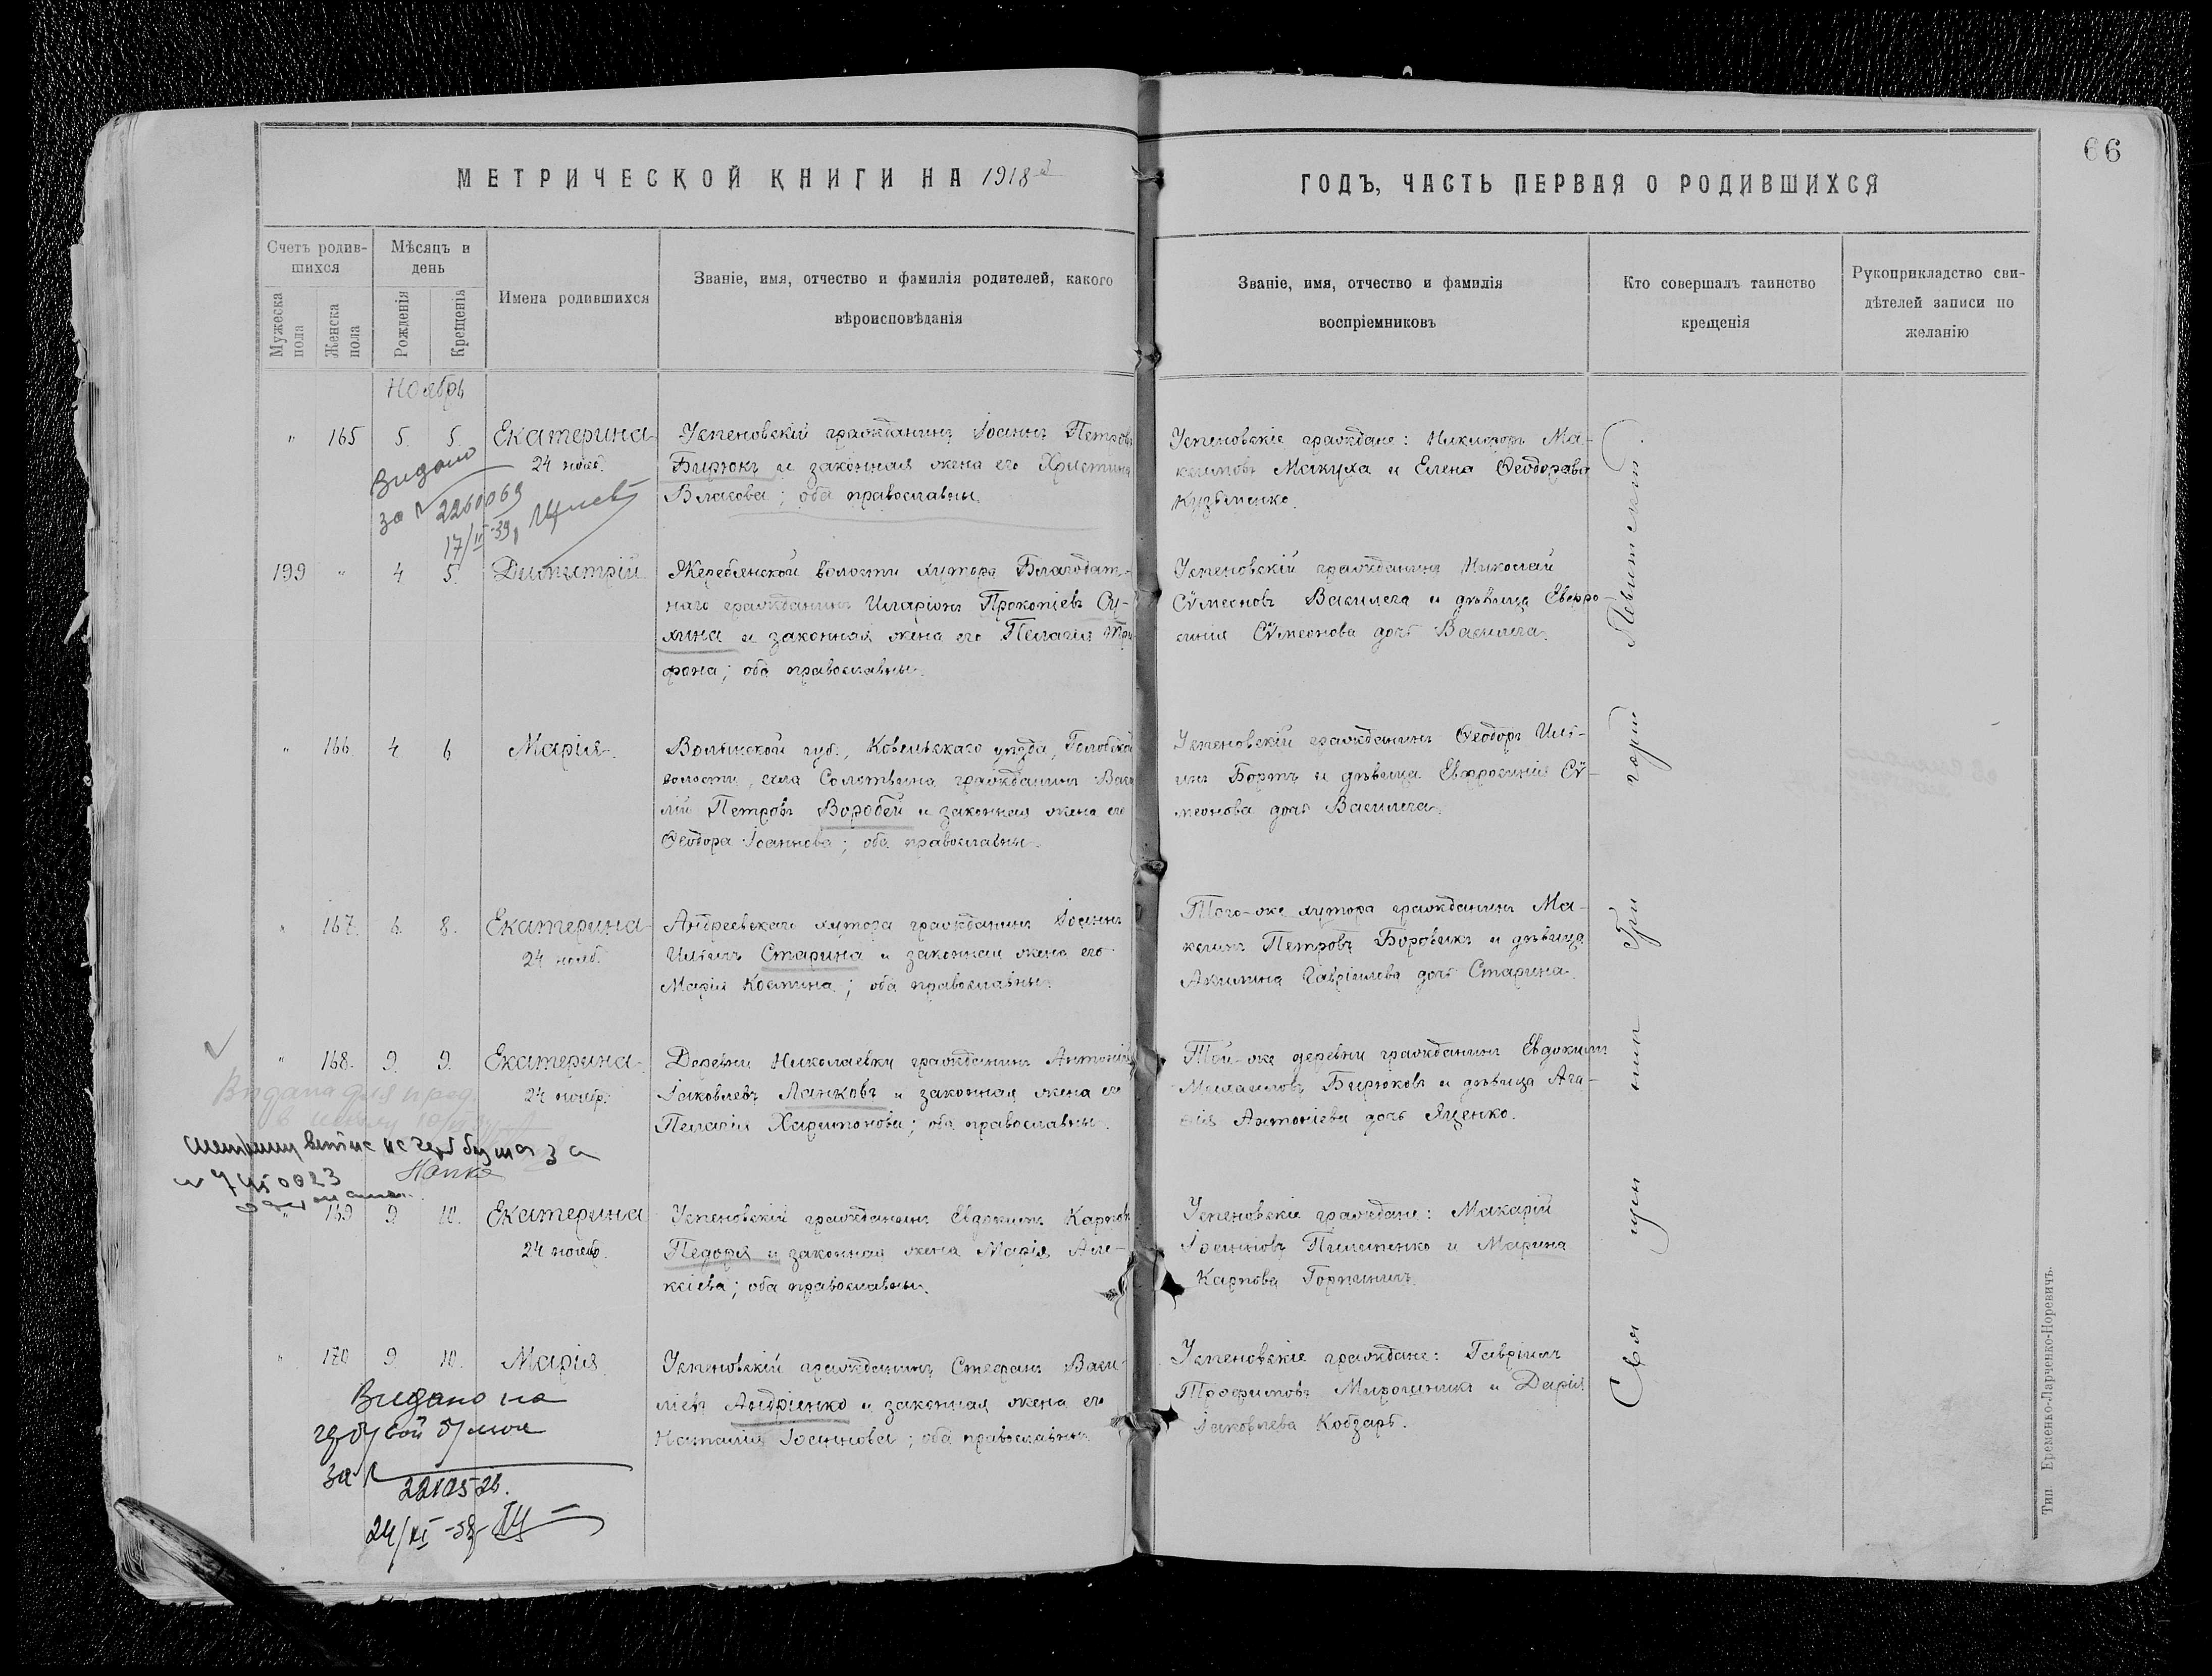 66
МЕТРИЧЕСКОЙ КНИГИ НА 1918й
ГОДЪ, ЧАСТЬ ПЕРВАЯ О РОДИВШИХСЯ
Счетъ родив-
шихся
Мужеска
пола
Женска
пола
Мѣсяцъ и
день
Рожденія
Крещенія
Имена родившихся
Званіе, имя, отчество и фамилія родителей, какого
вѣроисповѣданія
Званіе, имя, отчество и фамилія
воспріемниковъ
Кто совершалъ таинство
крещенія
Рукоприкладство сви-
дѣтелей записи по
желанію
Ноябрь
" 165 5. 5. Екатерина
24 нояб.
Успеновскій гражданинъ Іоаннъ Петровъ
Бирюкъ и законная жена его Христина
Власова; оба православны.
Успеновскіе граждане: Никифоръ Ма-
ксимовъ Макуха и Елена Ѳеодорова
Кузьменко.
Видано
за № 2260069
17/II-39
199 " 4 5. Димитрій
Жеребянской волости хутора Благодат-
наго гражданинъ Иларіонъ Прокопіевъ Су-
хина и законная жена его Пелагія Три-
фона; оба православны.
Успеновскій гражданинъ Николай
Сѵмеоновъ Василега и дѣвица Евфро
синія Сѵмеонова дочь Василега.
" 166. 4 6 Марія.
Волынской губ., Ковельскаго уѣзда, Голобской
волости, села Солотвина гражданинъ Васи
лій Петровъ Воробей и законная жена его
Ѳеодора Іоаннова; оба православны.
Успеновскій гражданинъ Ѳеодоръ Иль-
инъ Бортъ и дѣвица Евфросинія Сѵ-
меонова дочь Василега.
" 167. 6. 8. Екатерина
24 нояб.
Андреевскаго хутора гражданинъ Іоаннъ
Ильичъ Старина и законная жена его
Марія Костина; оба православны.
Того-же хутора гражданинъ Ма-
ксимъ Петровъ Боровикъ и дѣвица
Акилина Гавріилова дочь Старина.
" 168. 9. 9. Екатерина
24 нояб.
Деревни Николаевки гражданинъ Антоній
Іаковлевъ Панковъ и законная жена его
Пелагія Харитонова; оба православны.
Той-же деревни гражданинъ Евдокимъ
Михаиловъ Бирюковъ и дѣвица Ага-
ѳія Антоніева дочь Яценко.
Видана для
за
№
" 169 9 10. Екатерина
24 нояб.
Успеновскій гражданинъ Евдокимъ Карповъ
Педоря и законная жена Марія Але-
ксіева; оба православны.
Успеновскіе граждане: Макарій
Іоанновъ Пилипенко и Марина
Карпова Горпиничъ.
" 170 9 10. Марія
Успеновскій гражданинъ Стефанъ Васи-
ліевъ Андріенко и законная жена его
Наталія Іоаннова; оба православны.
Успеновскіе граждане: Гавріилъ
Трофимовъ Мирошникъ и Дарія
Іаковлева Кобзарь.
Видано на
гербовой бумаге
за №
24/XI
Свя щен никъ Гри горій
Тип. Еременко-Ларченко-Норевичъ.